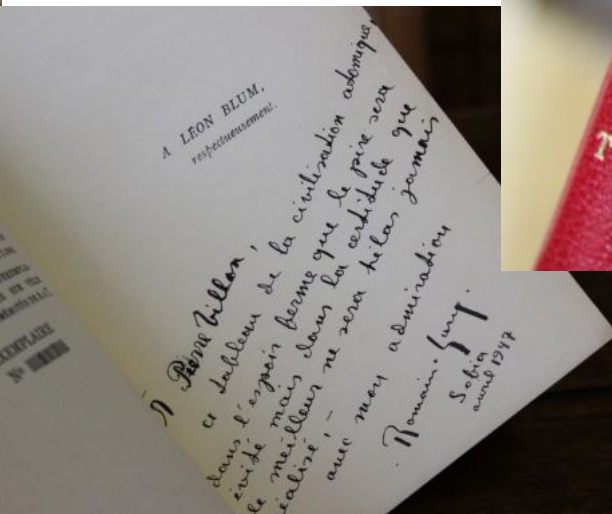 A LÉON BLUM,
respectueusement.
A Pierre Villon,
ce tableau de la civilisation atomique,
dans l'espoir ferme que le pire sera
évité mais dans la certitude que
le meilleur ne sera hélas jamais
réalisé, -
avec mon admiration
Romain Gary.
Sofia
avril 1947
EXEMPLAIRE
No
T